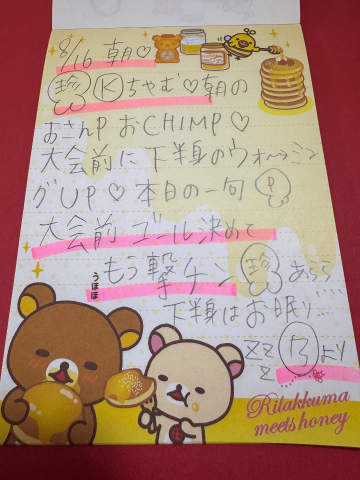 8/16 朝♡
珍 Ⓚちゃむ♡朝の
おさんP おCHIMP♡
大会前に下半身のウォ〜ミン
グUP♡ 本日の一句 P
大会前 ゴール決めて
もう撃チン 珍 あらら
うほほ
下半身はお眠り…
ZZZ Ⓑより
Rilakkuma
meets honey